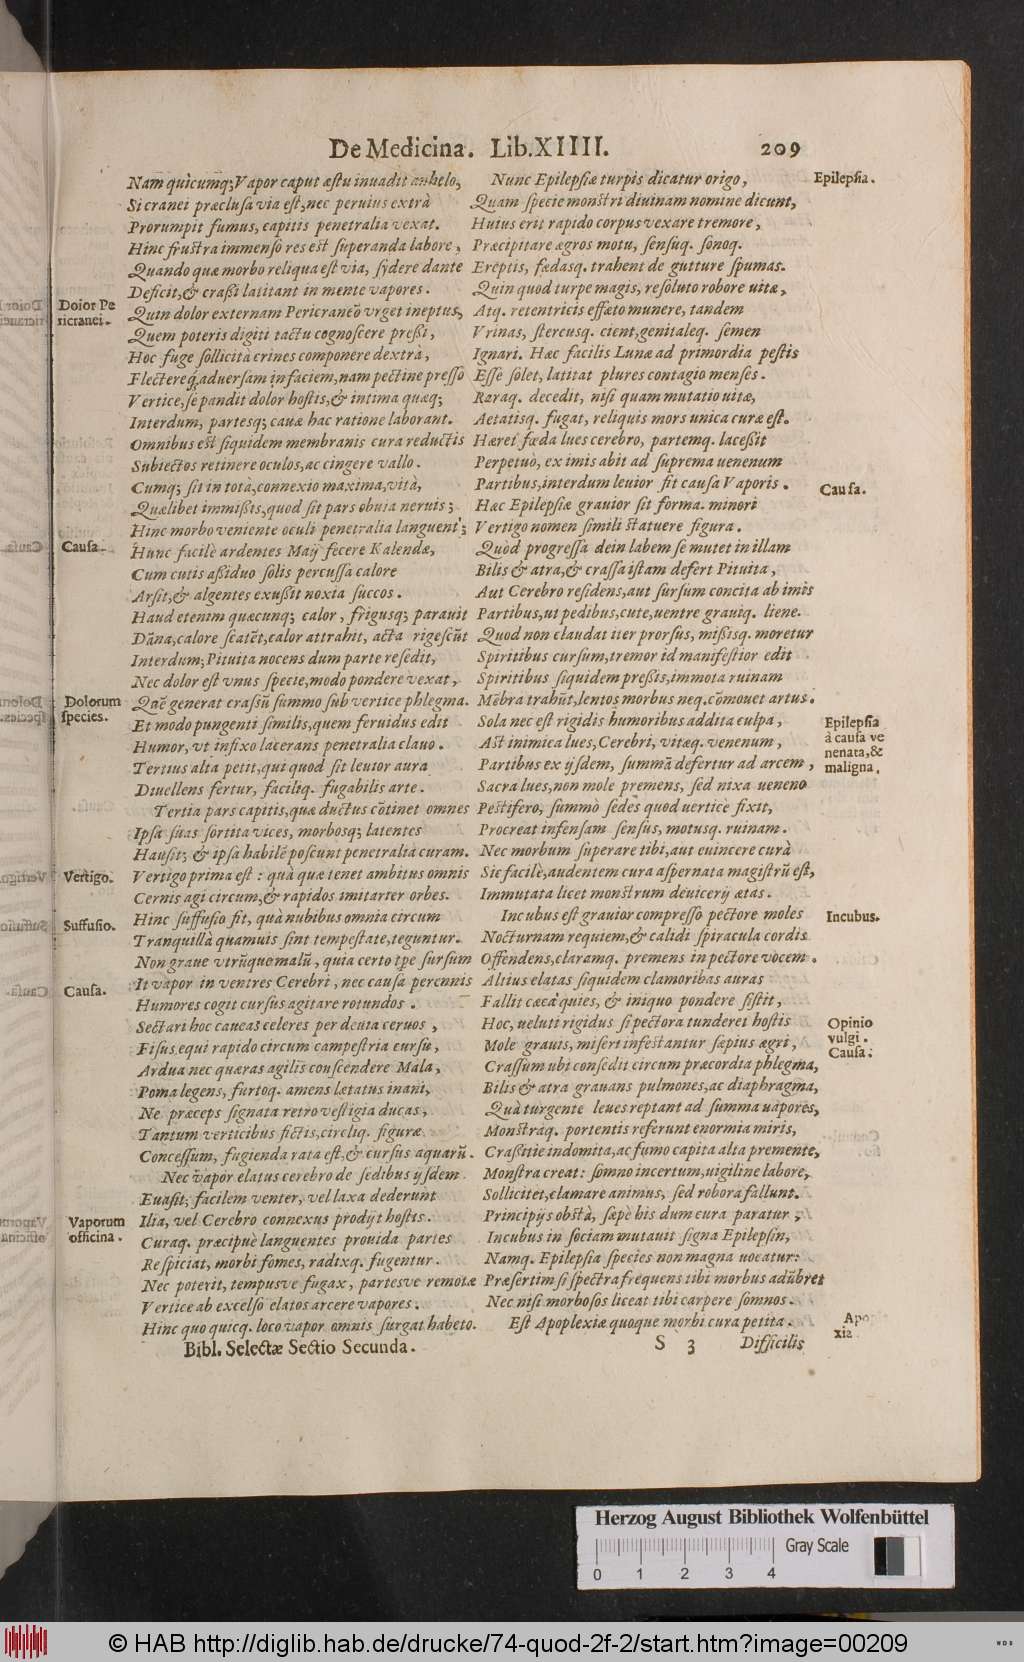 De Medicina. Lib.XIIII. 209
Nam quicumq; Vapor caput æstu inuadit anhelo,
Si cranei præclusa via est, nec peruius extrà
Prorumpit fumus, capitis penetralia vexat.
Hinc frustra immenso res est superanda labore,
Quando quæ morbo reliqua est via, sydere dante
Deficit, & craßi latitant in mente vapores.
Dolor Pe
ricranei.
Quin dolor externam Pericraneō vrget ineptus,
Quem poteris digiti tactu cognoscere preßi,
Hoc fuge sollicitâ crines componere dextrâ,
Flectereq́, aduersam in faciem, nam pectine presso
Vertice, se pandit dolor hostis, & intima quæq;
Interdum, partesq; cauæ hac ratione laborant.
Omnibus est siquidem membranis cura reductis
Subiectos retinere oculos, ac cingere vallo.
Cumq; sit in totâ, connexio maxima, vitâ,
Quælibet immißis, quod sit pars obuia neruis;
Hinc morbo veniente oculi penetralia languent;
Causa.
Hunc facilè ardentes Maij fecere Kalendæ,
Cum cutis aßiduo solis percussa calore
Arsit, & algentes exußit noxia succos.
Haud etenim quæcunq; calor, frigusq; parauit
Dāna, calore scatēt, calor attrahit, acta rigescūt
Interdum; Pituita nocens dum parte resedit,
Nec dolor est vnus specie, modo pondere vexat,
Dolorum
species.
Quē generat crassū summo sub vertice phlegma.
Et modo pungenti similis, quem feruidus edit
Humor, vt infixo lacerans penetralia clauo.
Tertius alta petit, qui quod sit leuior aura
Diuellens fertur, faciliq. fugabilis arte.
Tertia pars capitis, quæ ductus cōtinet omnes
Ipsa suas sortita vices, morbosq; latentes
Hausit; & ipsa habilē poscunt penetralia curam.
Vertigo.
Vertigo prima est: quâ quæ tenet ambitus omnis
Cernis agi circum, & rapidos imitarier orbes.
Suffusio.
Hinc suffusio fit, quâ nubibus omnia circum
Tranquillâ quamuis sint tempestate, teguntur.
Non graue vtrūque malū, quia certo tpe sursum
Causa.
It vapor in ventres Cerebri, nec causa perennis
Humores cogit cursus agitare rotundos.
Sectari hoc caueas celeres per deuia ceruos,
Fisus equi rapido circum campestria cursu,
Ardua nec quæras agilis conscendere Mala,
Poma legens, furtoq. amens lætatus inani,
Ne præceps signata retro vestigia ducas,
Tantum verticibus fictis, circliq. figuræ
Concessum, fugienda rata est, & cursus aquarū.
Nec vapor elatus cerebro de sedibus ijsdem
Euasit; facilem venter, vel laxa dederunt
Vaporum
officina.
Ilia, vel Cerebro connexus prodijt hostis.
Curaq. præcipuè languentes prouida partes
Respiciat, morbi fomes, radixq. fugentur.
Nec poterit, tempusve fugax, partesve remotæ
Vertice ab excelso elatos arcere vapores.
Hinc quo quicq. loco vapor omnis surgat habeto.
Nunc Epilepsiæ turpis dicatur origo,
Epilepsia.
Quam specie monstri diuinam nomine dicunt,
Huius erit rapido corpus vexare tremore,
Præcipitare ægros motu, sensuq. sonoq.
Ereptis, fædasq. trahent de gutture spumas.
Quin quod turpe magis, resoluto robore uitæ,
Atq. retentricis effæto munere, tandem
Vrinas, stercusq. cient, genitaleq. semen
Ignari. Hæc facilis Lunæ ad primordia pestis
Esse solet, latitat plures contagio menses.
Raraq. decedit, nisi quam mutatio uitæ,
Aetatisq. fugat, reliquis mors unica curæ est.
Hæret fæda lues cerebro, partemq. laceßit
Perpetuò, ex imis abit ad suprema uenenum
Partibus, interdum leuior fit causa Vaporis.
Causa.
Hac Epilepsiæ grauior sit forma. minori
Vertigo nomen simili statuere figura.
Quòd progressa dein labem se mutet in illam
Bilis & atra, & crassa istam defert Pituita,
Aut Cerebro residens, aut sursum concita ab imis
Partibus, ut pedibus, cute, uentre grauiq. liene.
Quod non claudat iter prorsus, mißisq. moretur
Spiritibus cursum, tremor id manifestior edit
Spiritibus siquidem preßis, immota ruinam
Mēbra trahūt, lentos morbus neq. cōmouet artus.
Epilepsia
à causa ve
nenata, &
maligna.
Sola nec est rigidis humoribus addita culpa,
Ast inimica lues, Cerebri, vitæq. venenum,
Partibus ex ijsdem, summā defertur ad arcem,
Sacra lues, non mole premens, sed nixa ueneno
Pestifero, summo sedes quod uertice fixit,
Procreat infensam sensus, motusq. ruinam.
Nec morbum superare tibi, aut euincere curâ
Sic facilè, audentem cura aspernata magistrū est,
Immutata licet monstrum deuicerij ætas.
Incubus.
Incubus est grauior compresso pectore moles
Nocturnam requiem, & calidi spiracula cordis
Offendens, claramq. premens in pectore vocem.
Altius elatas siquidem clamoribas auras
Fallit cæca quies, & iniquo pondere sistit,
Opinio
vulgi.
Causa.
Hoc, ueluti rigidus si pectora tunderet hostis
Mole grauis, miseri infestantur sæpius ægri,
Crassum ubi consedit circum præcordia phlegma,
Bilis & atra grauans pulmones, ac diaphragma,
Quà turgente leues reptant ad summa uapores,
Monstraq. portentis referunt enormia miris,
Craßitie indomita, ac fumo capita alta premente,
Monstra creat: somno incertum, uigiline labore,
Sollicitet, clamare animus, sed robora fallunt.
Principijs obstâ, sæpè his dum cura paratur,
Incubus in sociam mutauit signa Epilepsin,
Namq. Epilepsia species non magna uocatur:
Præsertim si spectra frequens tibi morbus adūbret
Nec nisi morbosos liceat tibi carpere somnos.
Apo
xia.
Est Apoplexiæ quoque morbi cura petita.
Bibl. Selectæ Sectio Secunda. S 3 Difficilis
Herzog August Bibliothek Wolfenbüttel
Gray Scale
0 1 2 3 4
© HAB http://diglib.hab.de/drucke/74-quod-2f-2/start.htm?image=00209